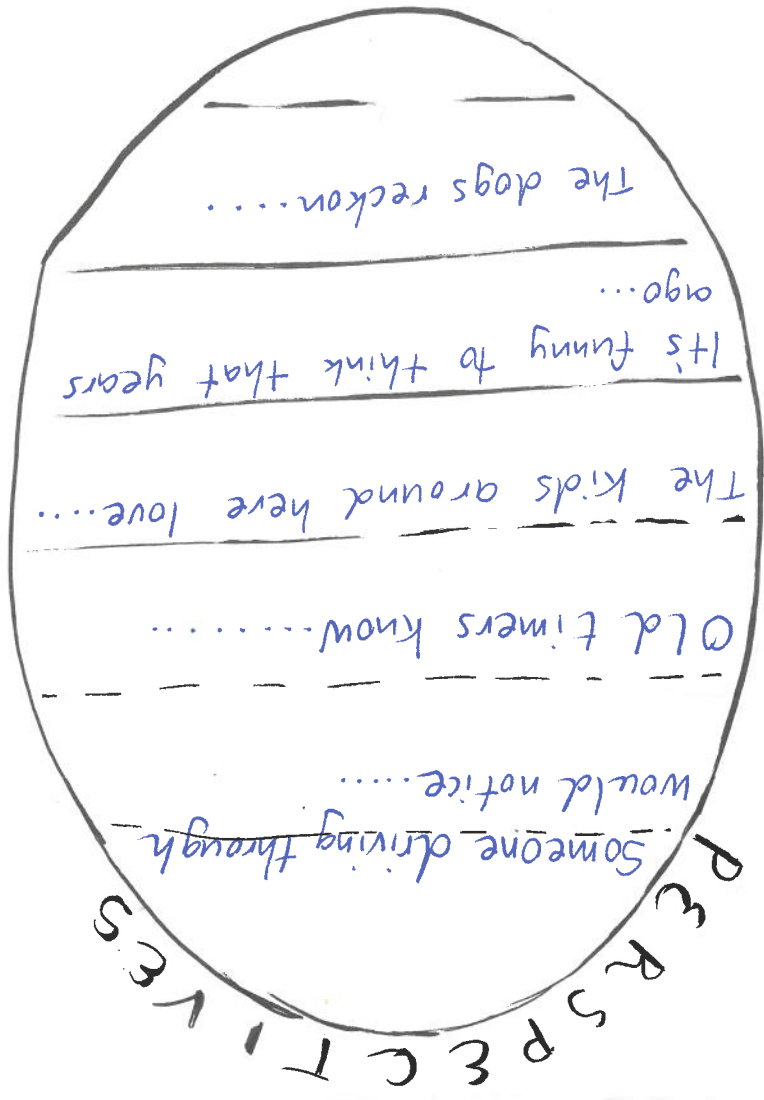 PERSPECTIVES
Someone driving through
would notice.....
Old timers know........
The kids around here love....
It's funny to think that years
ago...
The dogs reckon.....